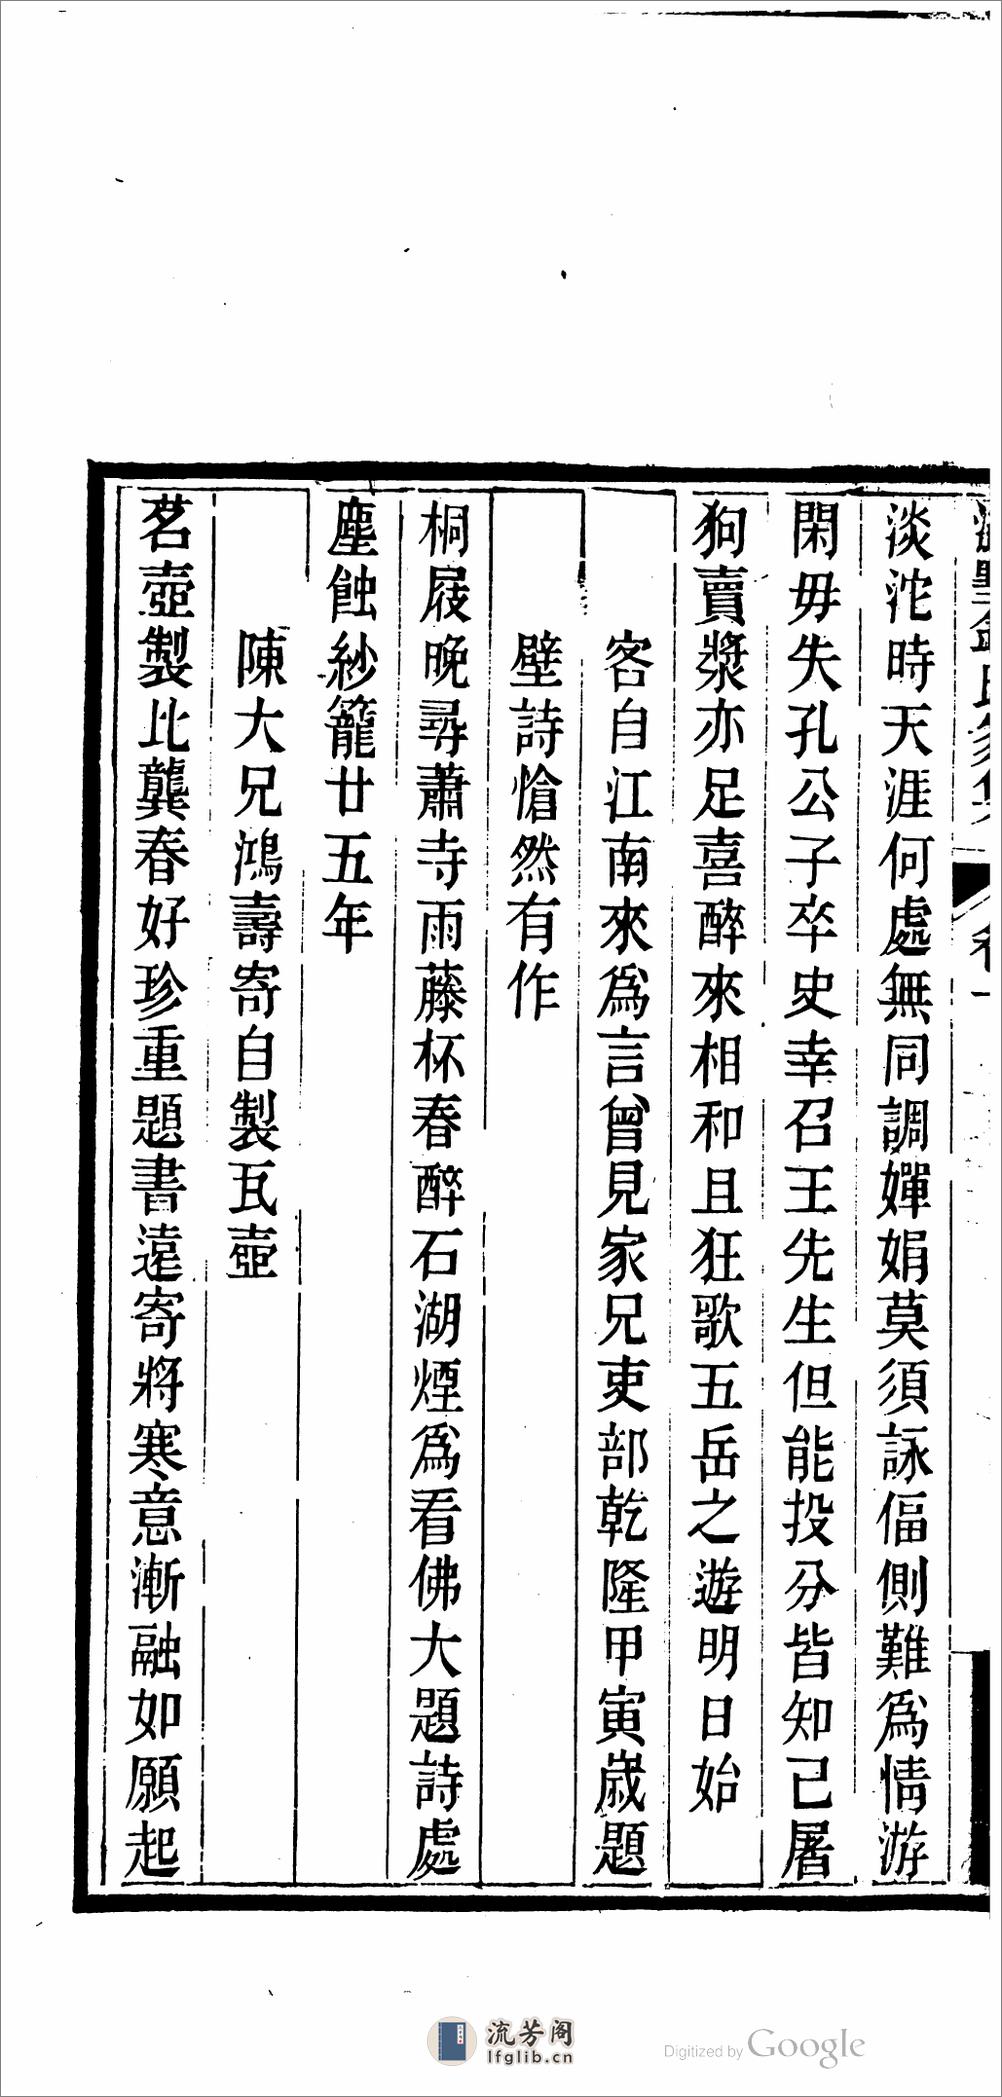 淡沱時天涯何處無同調嬋娟莫須詠偪側難爲情游
閑毋失孔公子卒史幸召王先生但能投分皆知已屠
狗賣漿亦足喜醉來相和且狂歌五岳之遊明日始
客自江南來爲言曾見家兄吏部乾隆甲寅歲題
壁詩愴然有作
桐屐晚尋蕭寺雨藤杯春醉石湖煙爲看佛大題詩處
塵蝕紗籠廿五年
陳大兄鴻壽寄自製瓦壺
茗壺製比龔春好珍重題書遠寄將寒意漸融如願起
流芳阁
lfglib.cn
Digitized by Google